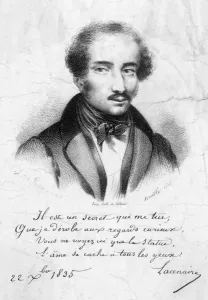 Il est un secret qui me tue,
Que je dérobe aux regards curieux.
Vous ne voyez ici que la statue,
L'âme se cache à tous les yeux.
22 Xbre 1835 Lacenaire